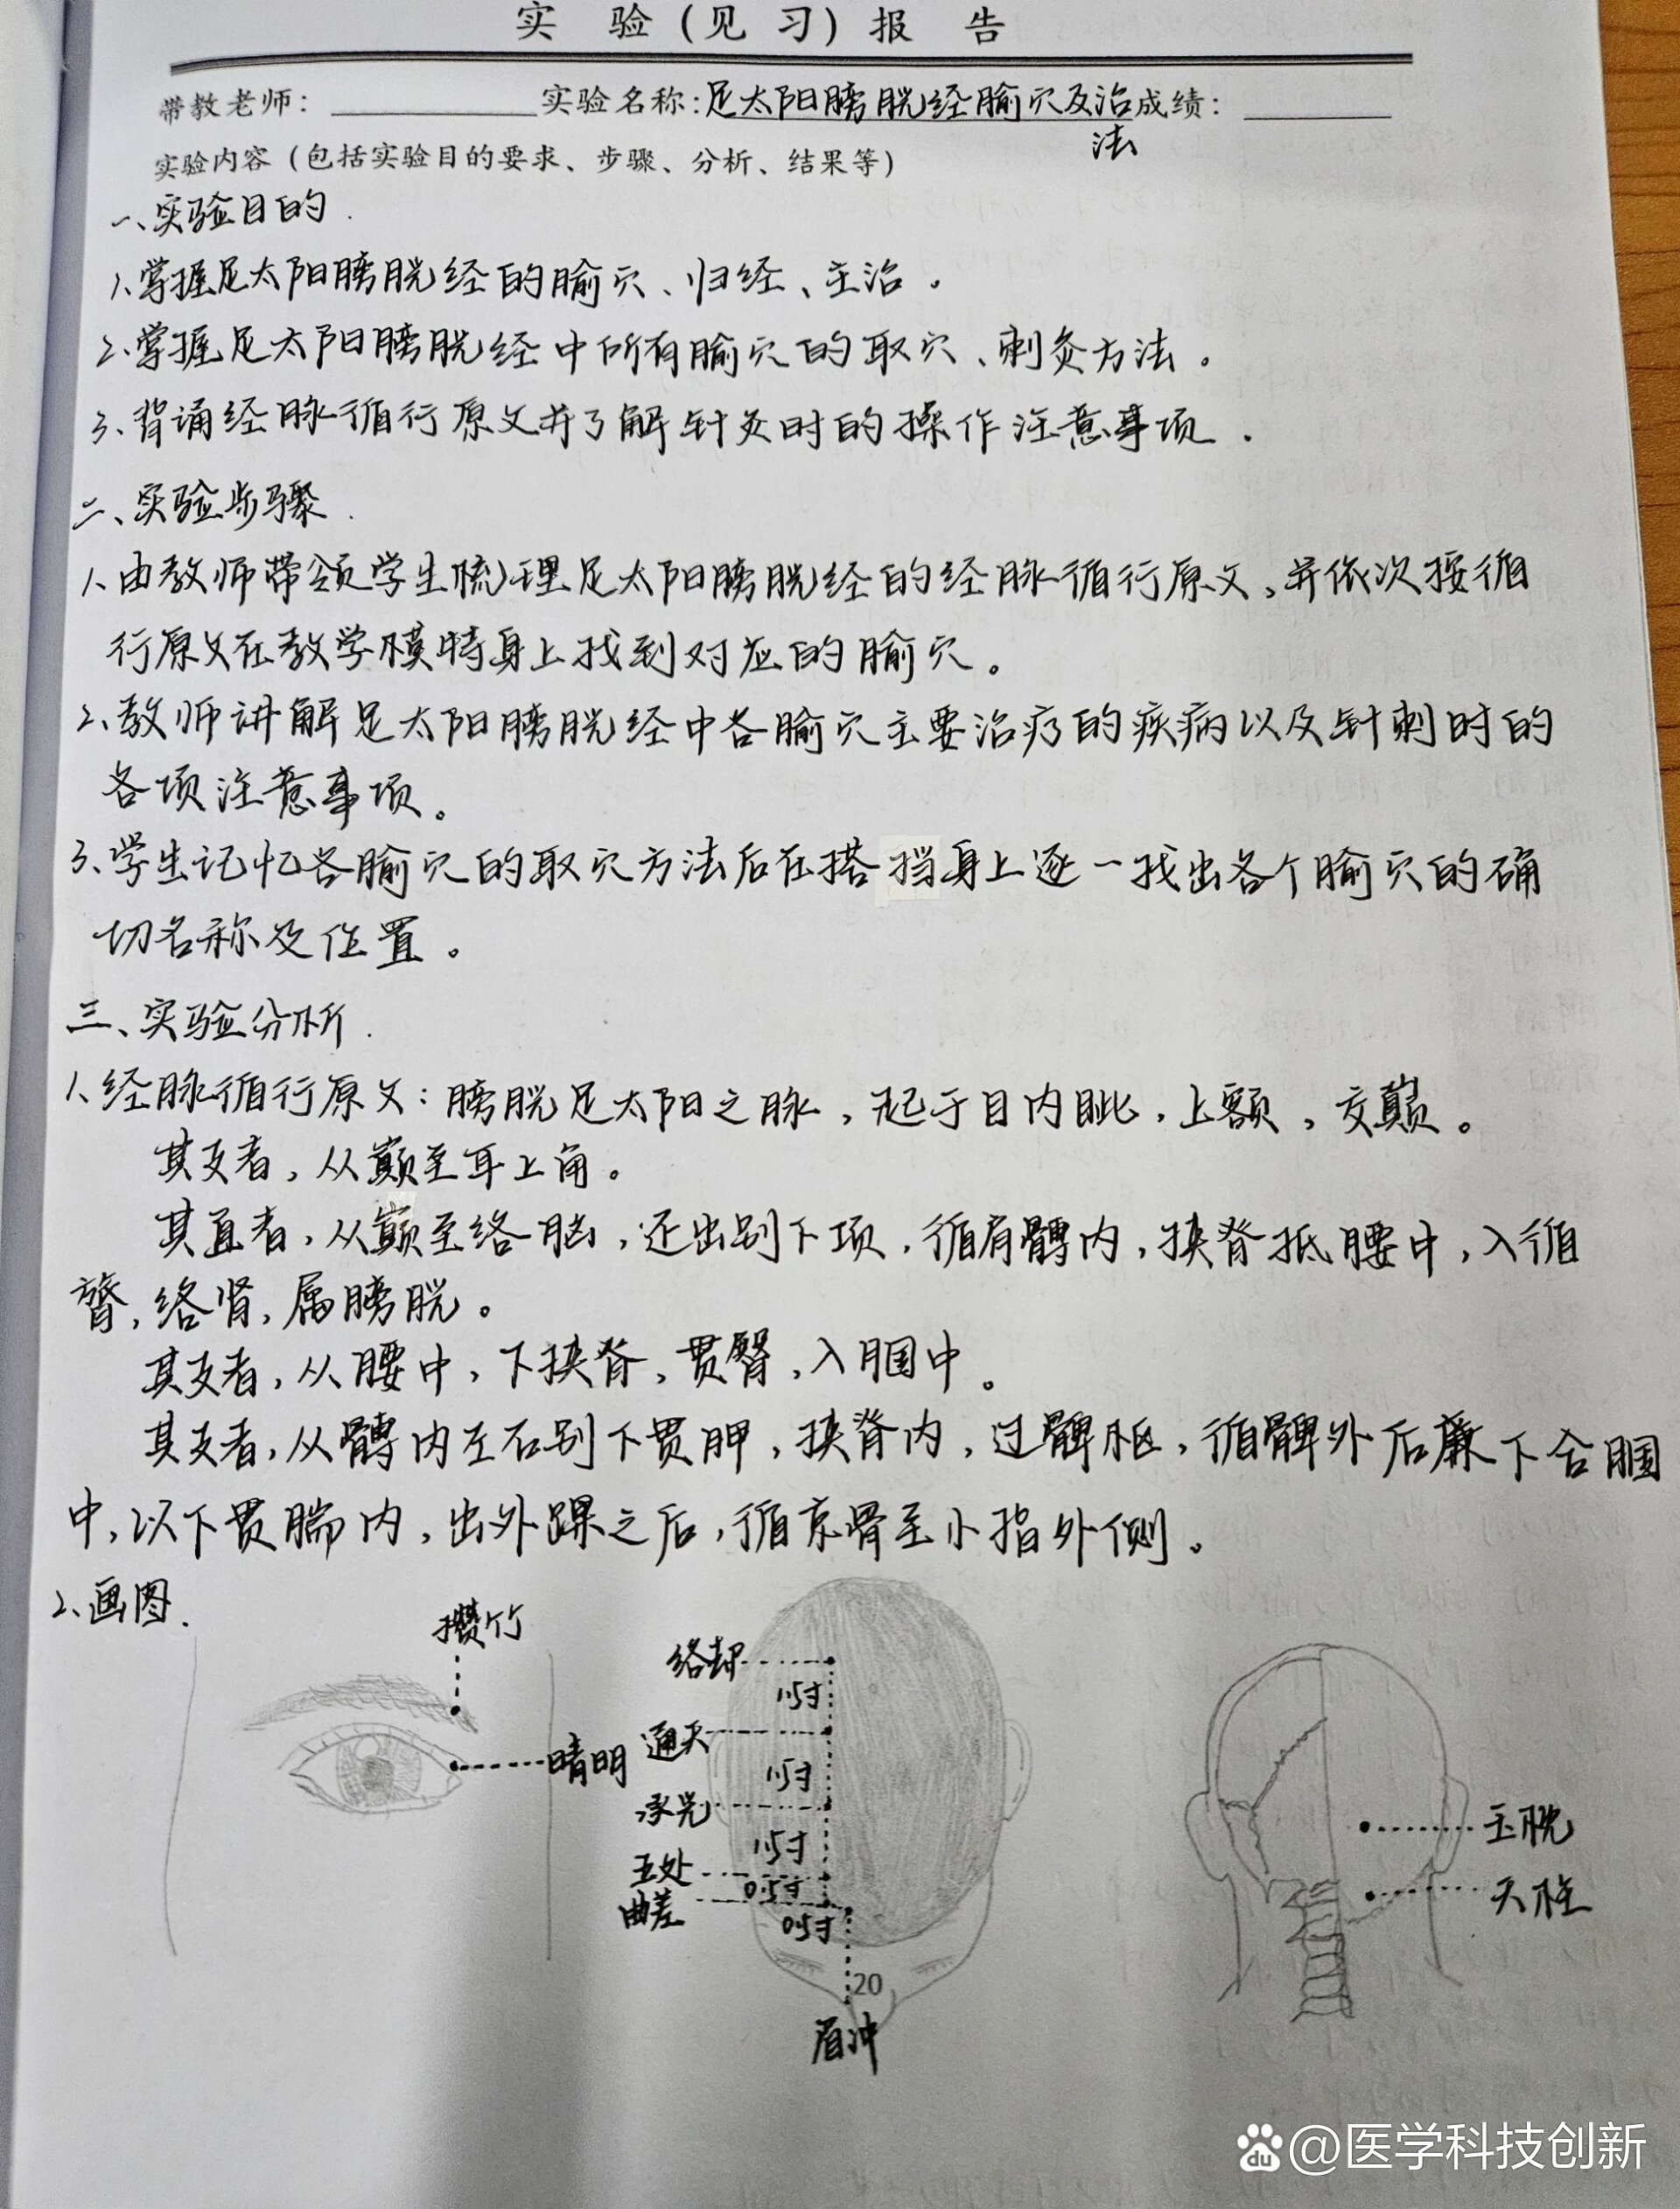 实 验（见 习）报 告
带教老师： 实验名称：足太阳膀胱经腧穴及治成绩：
法
实验内容（包括实验目的要求、步骤、分析、结果等）
一、实验目的.
1、掌握足太阳膀胱经的腧穴、归经、主治。
2、掌握足太阳膀胱经中所有腧穴的取穴、刺灸方法。
3、背诵经脉循行原文并了解针灸时的操作注意事项.
二、实验步骤.
1、由教师带领学生梳理足太阳膀胱经的经脉循行原文,并依次按循
行原文在教学模特身上找到对应的腧穴。
2、教师讲解足太阳膀胱经中各腧穴主要治疗的疾病以及针刺时的
各项注意事项。
3、学生记忆各腧穴的取穴方法后在搭挡身上逐一找出各个腧穴的确
切名称及位置。
三、实验分析.
1、经脉循行原文：膀胱足太阳之脉，起于目内眦，上额，交巅。
其支者，从巅至耳上角。
其直者，从巅至络脑，还出别下项，循肩髆内，挟脊抵腰中，入循
膂，络肾，属膀胱。
其支者，从腰中，下挟脊，贯臀，入腘中。
其支者，从髆内左右别下贯胛，挟脊内，过髀枢，循髀外后廉下合腘
中，以下贯腨内，出外踝之后，循京骨至小指外侧。
2、画图.
攒竹
睛明
络却
1.5寸
通天
1.5寸
承光
1.5寸
五处
0.5寸
曲差
0.5寸
20
眉冲
玉枕
天柱
du @医学科技创新